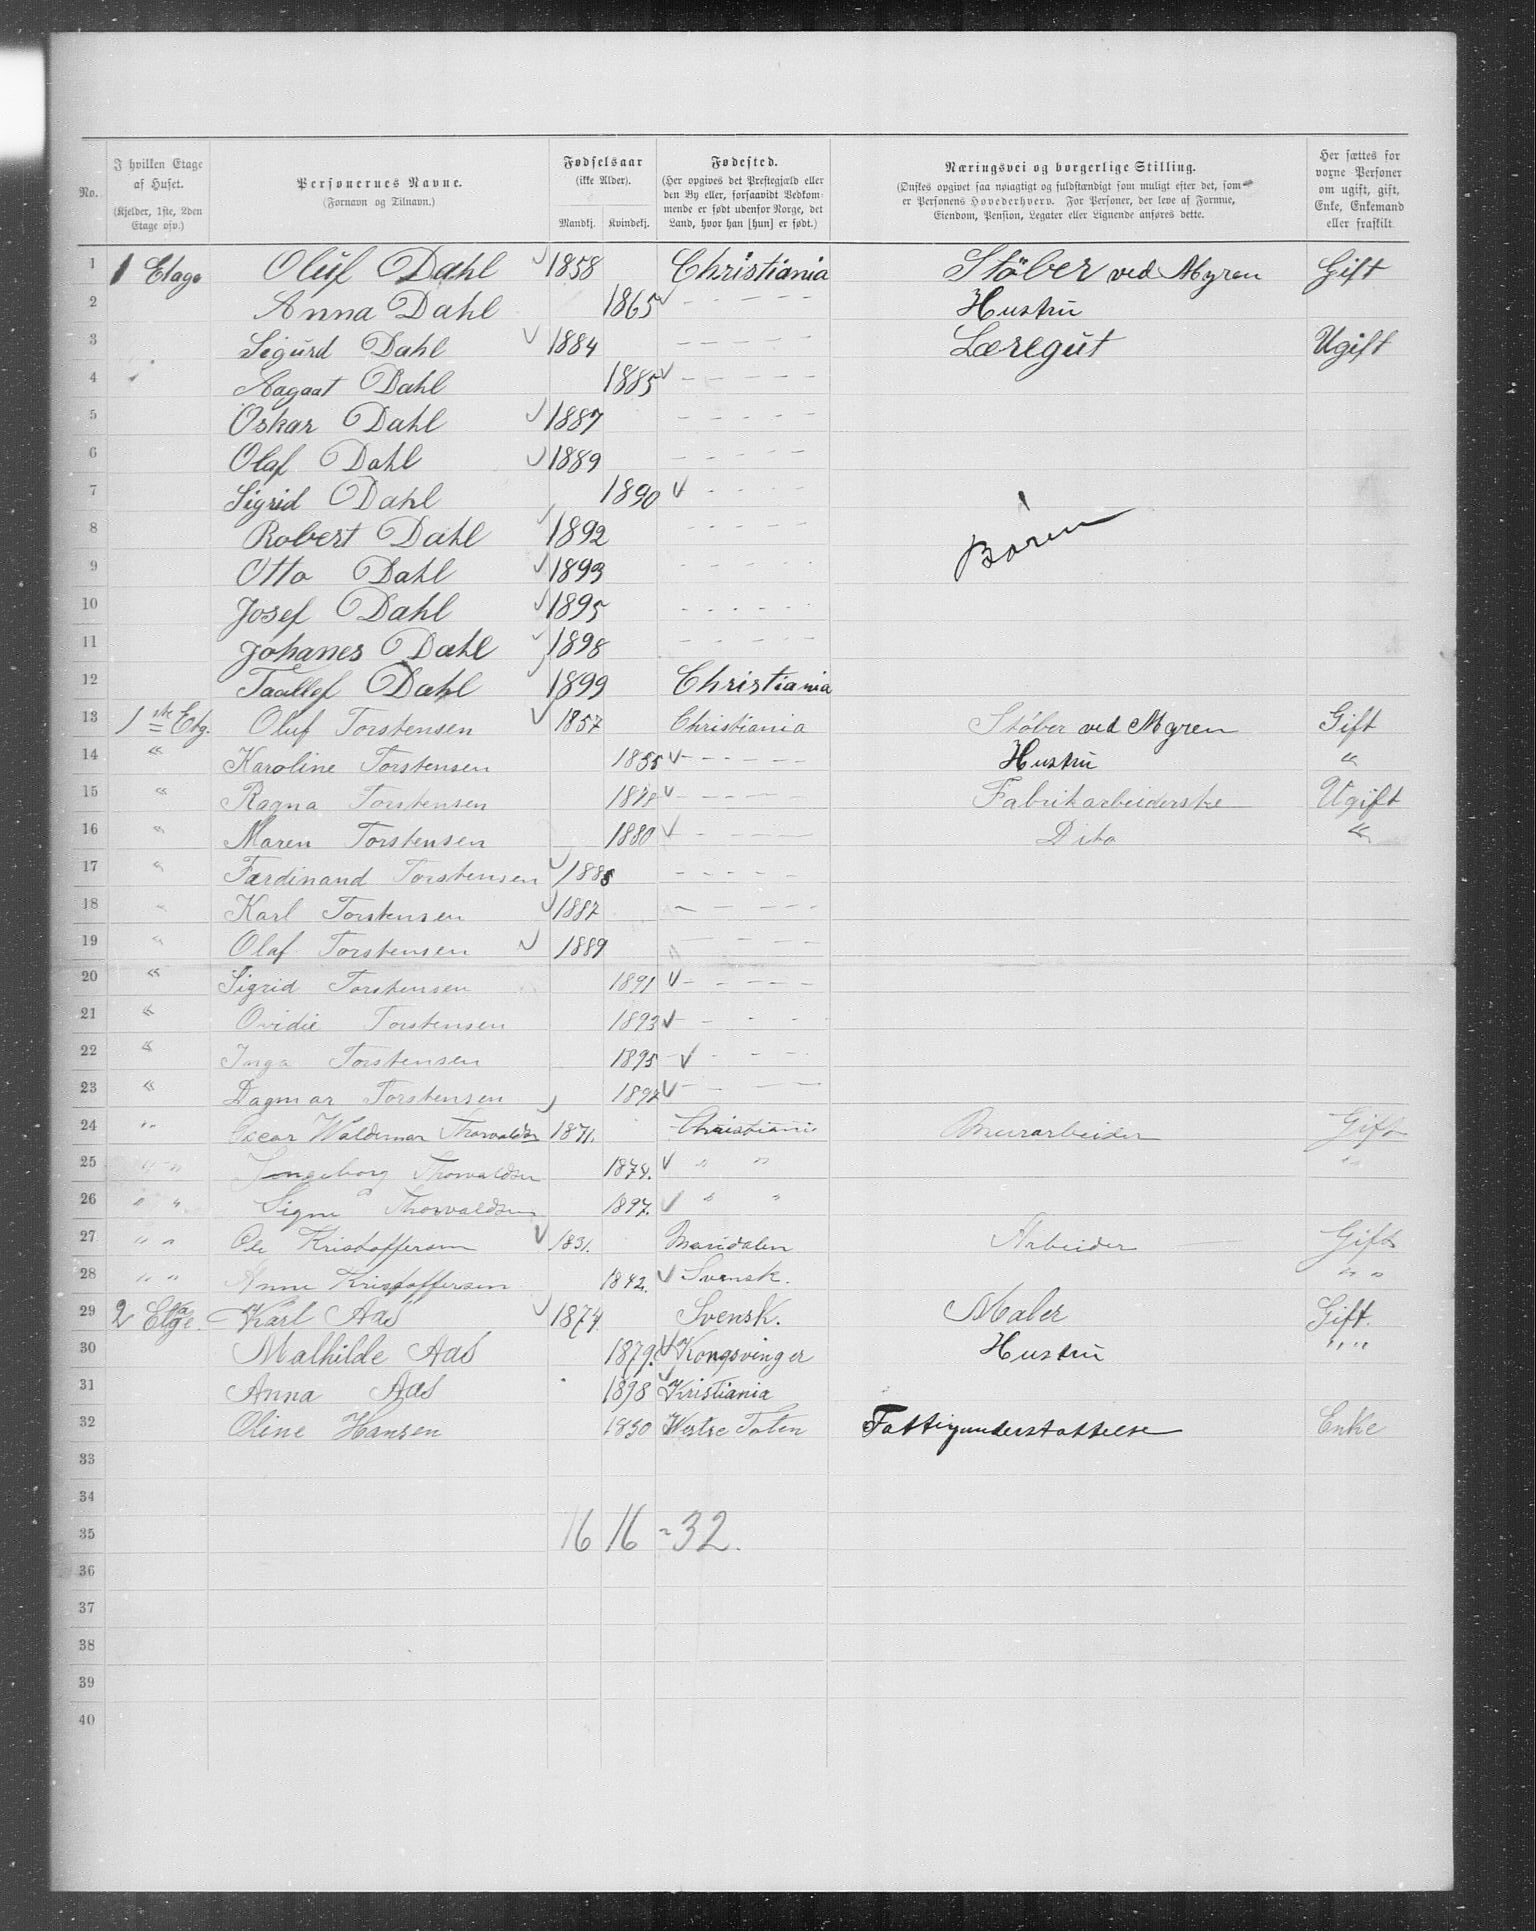 No.
I hvilken Etage af Huset.
(Kjelder, 1ste, 2den Etage osv.)
Personernes Navne.
(Fornavn og Tilnavn.)
Fødselsaar
(ikke Alder).
Mandkj. Kvindekj.
Fødested.
(Her opgives det Prestegjæld eller
den By eller, forsaavidt Vedkom-
mende er født udenfor Norge, det
Land, hvor han [hun] er født.)
Næringsvei og borgerlige Stilling.
(Ønskes opgivet saa nøiagtigt og fuldstændigt som muligt efter det, som
er Personens Hovederhverv. For Personer, der leve af Formue,
Eiendom, Pension, Legater eller Lignende anføres dette.
Her sættes for
voxne Personer
om ugift, gift,
Enke, Enkemand
eller fraskilt.
1 1 Etage Oluf Dahl 1858 Christiania Støber ved Myren Gift
2 Anna Dahl 1865 - - - - Hustru
3 Sigurd Dahl 1884 - - - - Læregut Ugift
4 Aagaat Dahl 1885 - - - -
5 Oskar Dahl 1887 - - - -
6 Olaf Dahl 1889 - - - -
7 Sigrid Dahl 1890 - - - -
8 Robert Dahl 1892 - - - - Børn
9 Otto Dahl 1893 - - - -
10 Josef Dahl 1895 - - - -
11 Johanes Dahl 1898 - - - -
12 Dahl 1899 Christiania
13 1ste Etg. Oluf Torstensen 1857 Christiania Støber ved Myren Gift
14 " Karoline Torstensen 1855 - - - - Hustru "
15 " Ragna Torstensen 1878 - - - - Fabrikarbeiderske Ugift
16 " Maren Torstensen 1880 - - - Dito "
17 " Færdinand Torstensen 1885 - - - -
18 " Karl Torstensen 1887 - - - -
19 " Olaf Torstensen 1889 - - - -
20 " Sigrid Torstensen 1891 - - - -
21 " Ovidie Torstensen 1893 - - - -
22 " Inga Torstensen 1895 - - - -
23 " Dagmar Torstensen 1897 - - -
24 " Oscar Waldemar Thorvaldsen 1871. Christiania Murarbeider Gift
25 " " Ingeborg Thorvaldsen 1874. " " "
26 " " Signe Thorvaldsen 1897. " "
27 " " Ole Kristoffersen 1831. Maridalen Arbeider Gift
28 " " Anne Kristoffersen 1842. Svensk. " "
29 2 Etage. Karl Aas 1874. Svensk. Maler Gift.
30 Mathilde Aas 1879. Kongsvinger Hustru " "
31 Anna Aas 1898 Kristiania
32 Oline Hansen 1830 Westre Toten Fattigunderstøttelse Enke
33
34
35 16 16 = 32.
36
37
38
39
40